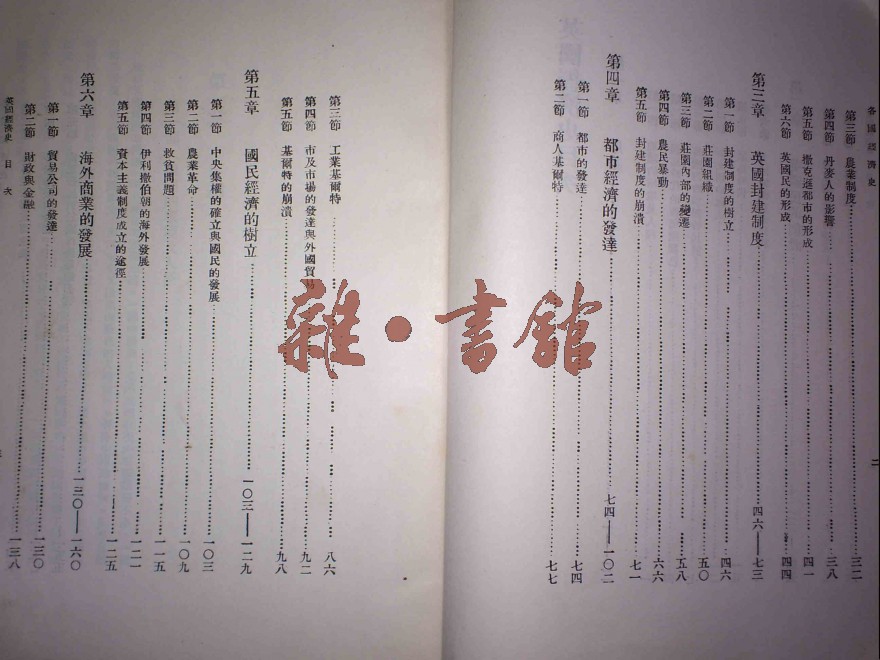 各國經濟史
二
第三節 農業制度……三二
第四節 丹麥人的影響……三八
第五節 撒克遜都市的形成……四一
第六節 英國民的形成……四四
第三章 英國封建制度……四六——七三
第一節 封建制度的樹立……四六
第二節 莊園組織……五〇
第三節 莊園內部的變遷……五八
第四節 農民暴動……六六
第五節 封建制度的崩潰……七一
第四章 都市經濟的發達……七四——一〇二
第一節 都市的發達……七四
第二節 商人基爾特……七七
第三節 工業基爾特……八六
第四節 市及市場的發達與外國貿易……九二
第五節 基爾特的崩潰……九八
第五章 國民經濟的樹立……一〇三——一二九
第一節 中央集權的確立與國民的發展……一〇三
第二節 農業革命……一〇九
第三節 救貧問題……一一五
第四節 伊利撒伯朝的海外發展……一二一
第五節 資本主義制度成立的途徑……一二五
第六章 海外商業的發展……一三〇——一六〇
第一節 貿易公司的發達……一三〇
第二節 財政與金融……一三八
英國經濟史 目次
雜·書館